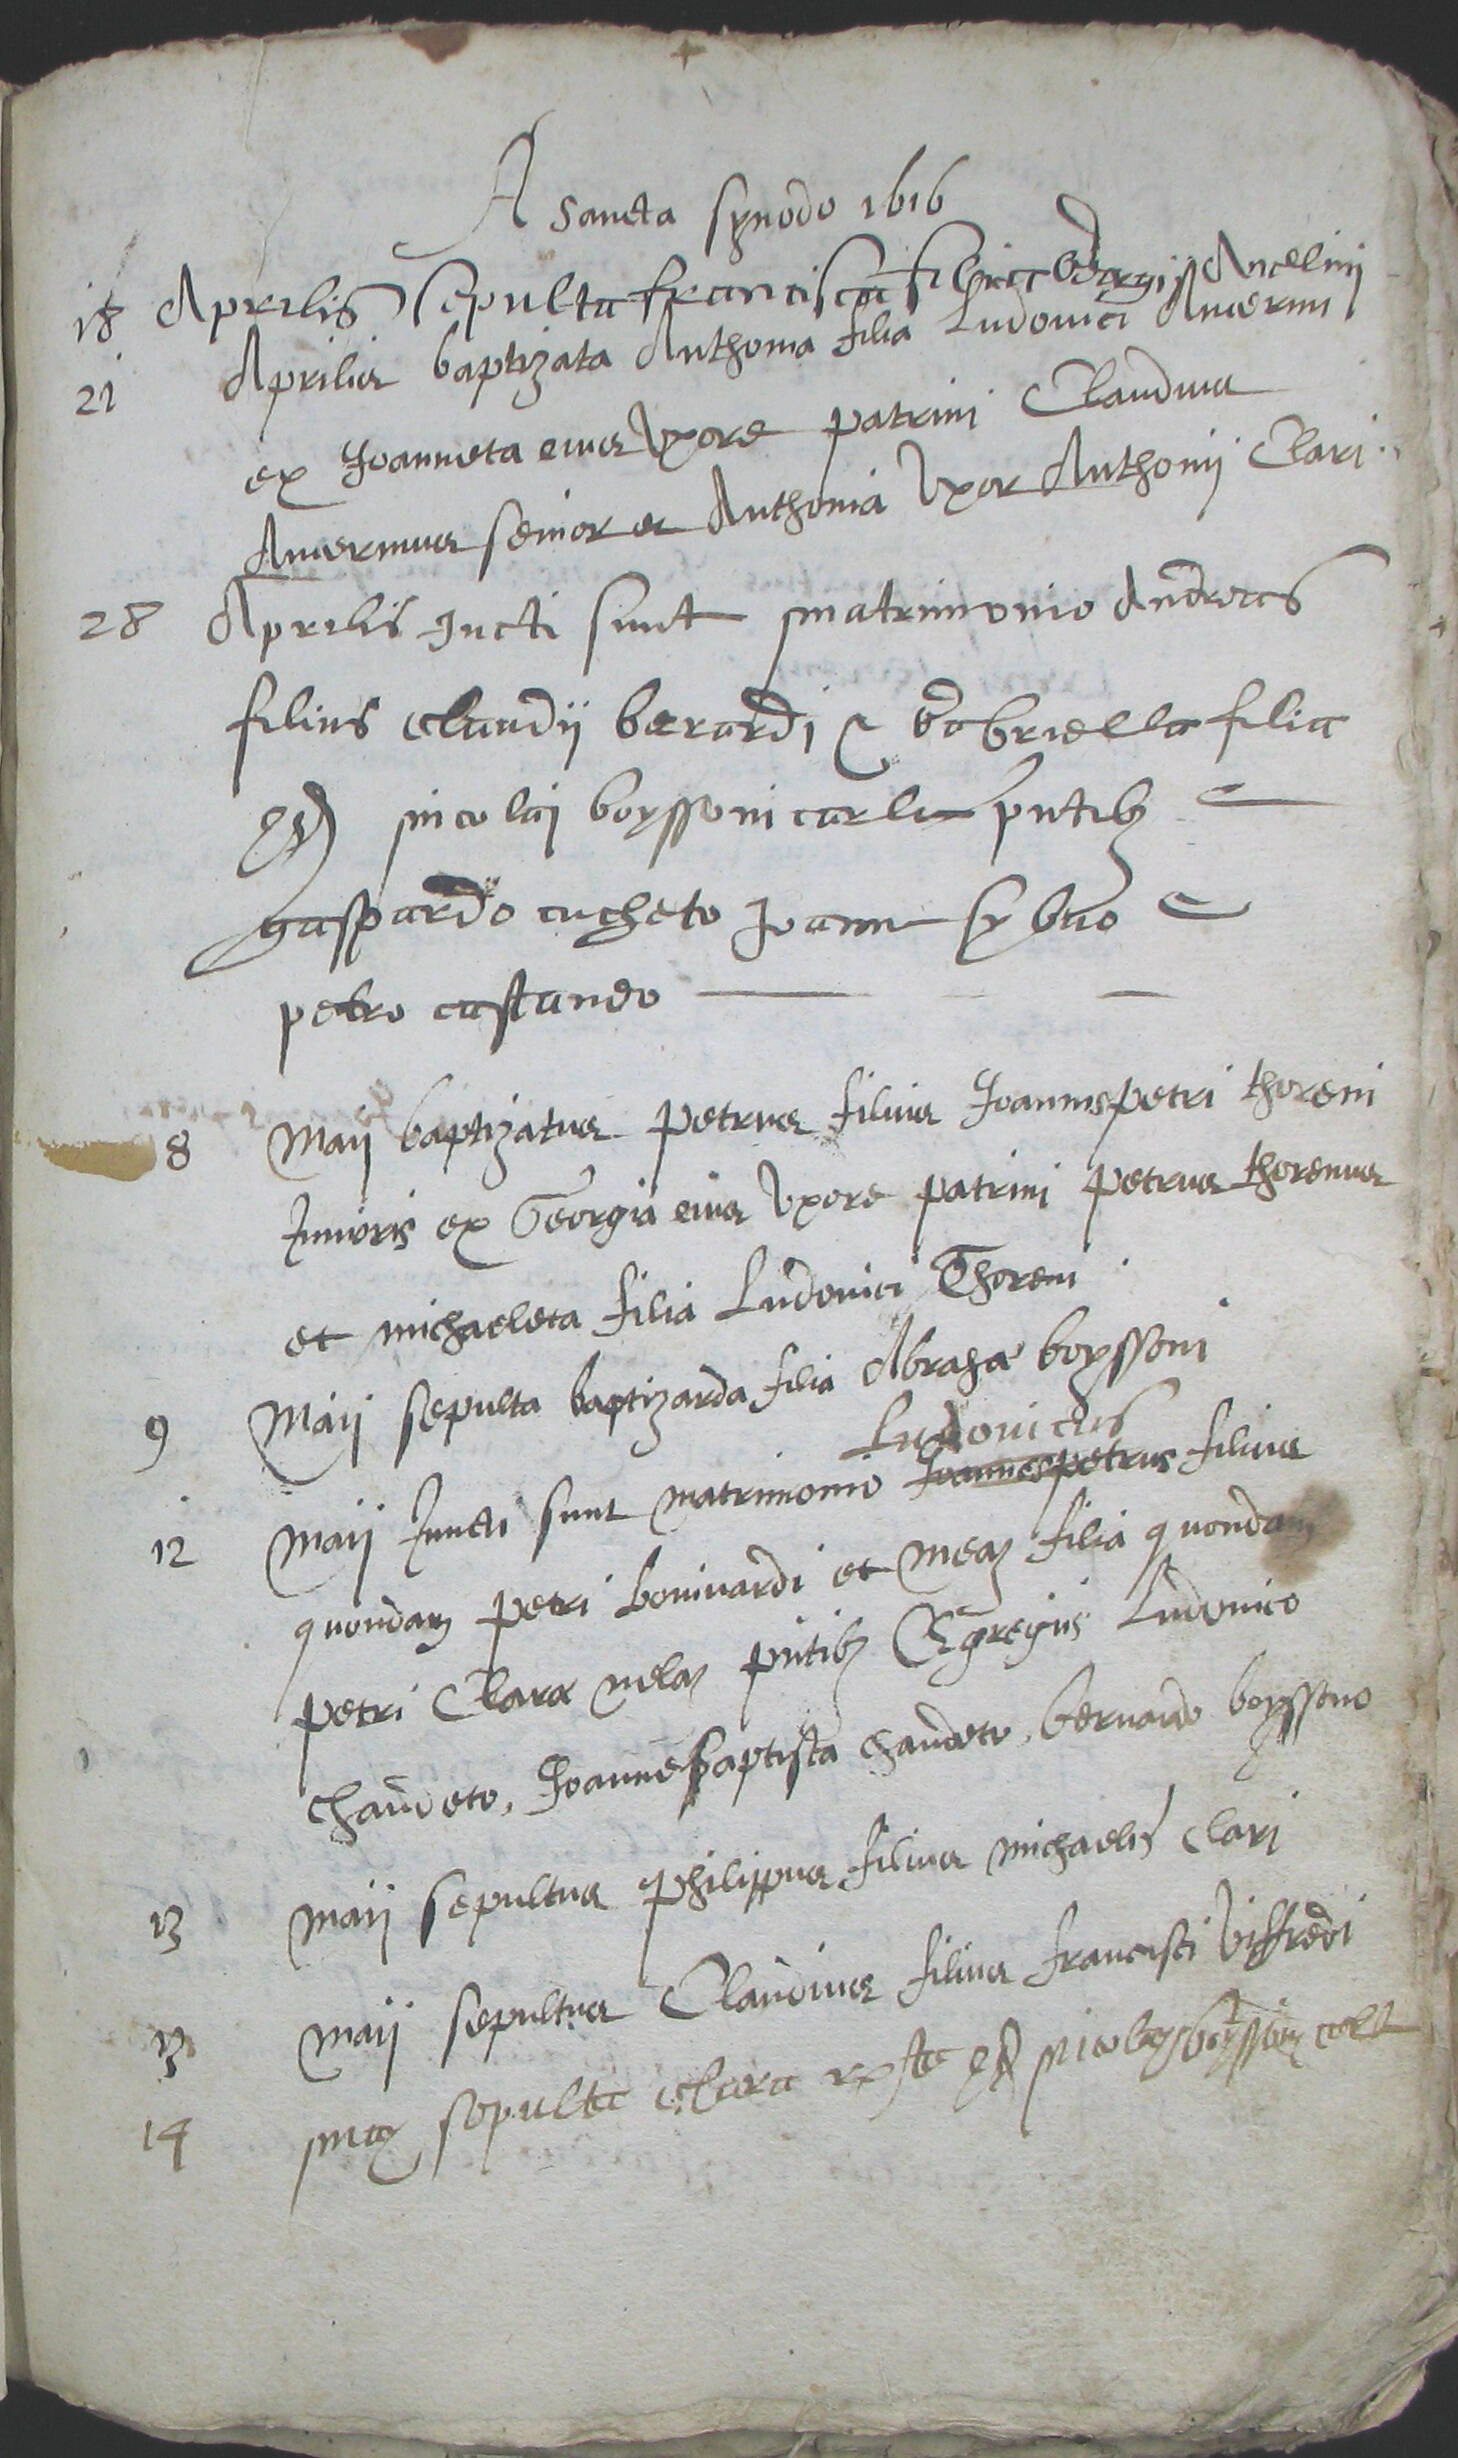 A sancta synodo 1616
18 Aprilis sepulta francisca filia Georgij Ancelini
21 Aprilis baptizata Anthonia filia Ludovici Avernni
ex Joanneta eius Uxore patrini Claudius
Avernnus senior et Anthonia Uxor Anthonij Clari
28 Aprilis Jucti sunt matrimonio Andreas
filius claudij berardi & Gabriella filia
qd nicolaj boyssoni carli pntib3
gaspardo cucheto Joanne
petro castando
8 Maij baptizatus petrus filius Joannispetri thoreni
Junioris ex Georgia eius Uxore patrini petrus thorenus
et michaeleta filia Ludovici Thoreni
9 Maij sepulta baptizarda filia Abrahæ boyssoni
Ludovicus
12 maij Juncti sunt matrimonio Joannespetrus filius
quondam petri bonivardi et filia quondam
petri Claræ pntib3 Egregiis Ludovico
chaudeto, Joannebaptista chaudeto, bernardo boyssono
13 maij sepultus philippus filius michaelis clarj
13 maij sepultus Claudius filius francisci Viffredi
14 maij sepulta clara qd nicolaj boyssonj